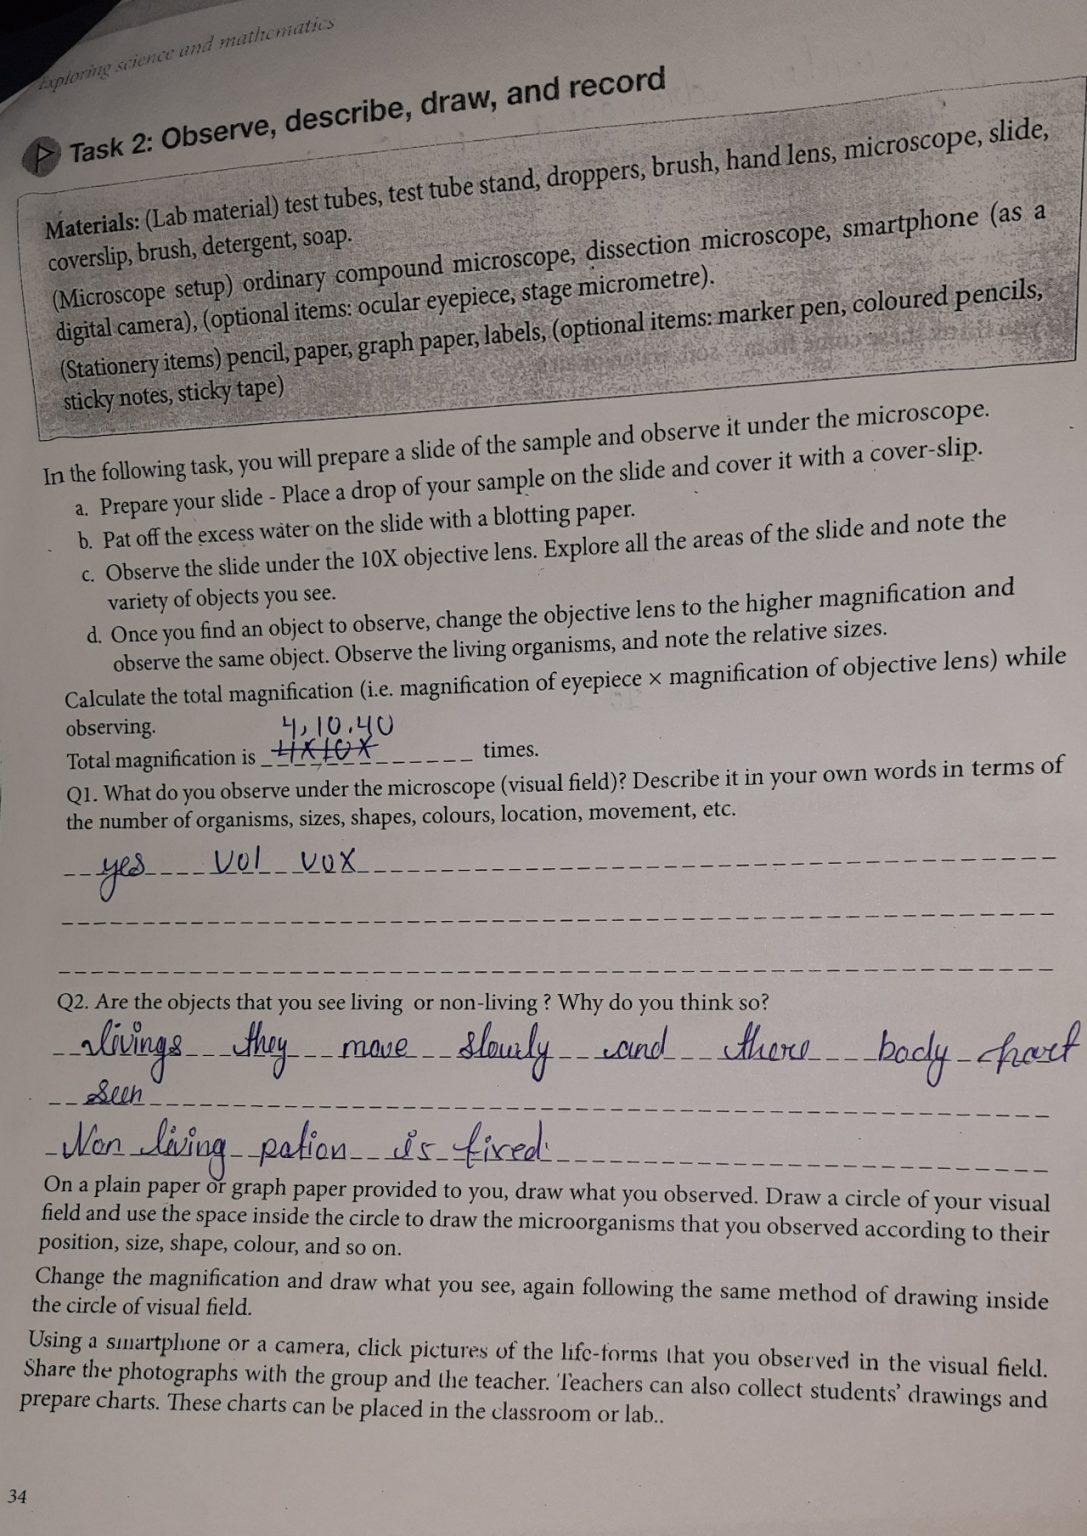 Exploring science and mathematics
Task 2: Observe, describe, draw, and record
Materials: (Lab material) test tubes, test tube stand, droppers, brush, hand lens, microscope, slide,
coverslip, brush, detergent, soap.
(Microscope setup) ordinary compound microscope, dissection microscope, smartphone (as a
digital camera), (optional items: ocular eyepiece, stage micrometre).
(Stationery items) pencil, paper, graph paper, labels, (optional items: marker pen, coloured pencils,
sticky notes, sticky tape)
In the following task, you will prepare a slide of the sample and observe it under the microscope.
a. Prepare your slide - Place a drop of your sample on the slide and cover it with a cover-slip.
b. Pat off the excess water on the slide with a blotting paper.
c. Observe the slide under the 10X objective lens. Explore all the areas of the slide and note the
variety of objects you see.
d. Once you find an object to observe, change the objective lens to the higher magnification and
observe the same object. Observe the living organisms, and note the relative sizes.
Calculate the total magnification (i.e. magnification of eyepiece × magnification of objective lens) while
observing.
4, 10, 40
Total magnification is 4x10x times.
Q1. What do you observe under the microscope (visual field)? Describe it in your own words in terms of
the number of organisms, sizes, shapes, colours, location, movement, etc.
yes vol vox
Q2. Are the objects that you see living or non-living ? Why do you think so?
livings they move slowly and there body
seen
Non living is fixed
On a plain paper or graph paper provided to you, draw what you observed. Draw a circle of your visual
field and use the space inside the circle to draw the microorganisms that you observed according to their
position, size, shape, colour, and so on.
Change the magnification and draw what you see, again following the same method of drawing inside
the circle of visual field.
Using a smartphone or a camera, click pictures of the life-forms that you observed in the visual field.
Share the photographs with the group and the teacher. Teachers can also collect students' drawings and
prepare charts. These charts can be placed in the classroom or lab..
34